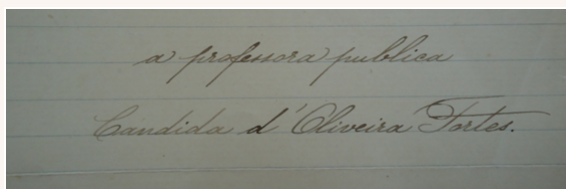 a professora publica
Candida d'Oliveira Fortes.